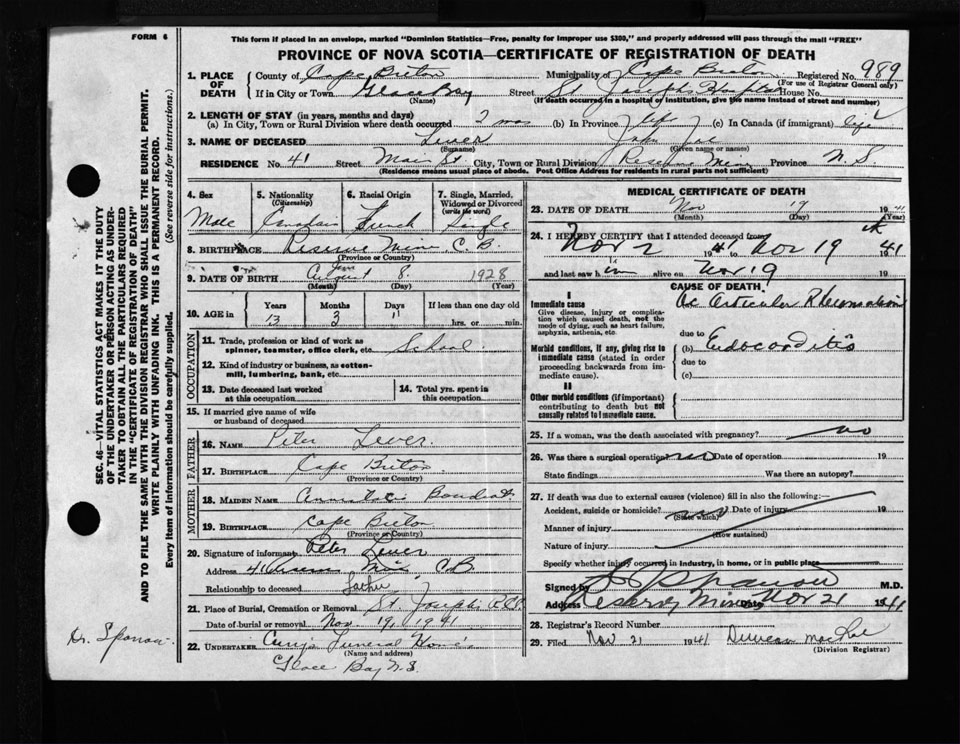 FORM 6
This form if placed in an envelope, marked "Dominion Statistics—Free, penalty for improper use $300," and properly addressed will pass through the mail "FREE"
PROVINCE OF NOVA SCOTIA—CERTIFICATE OF REGISTRATION OF DEATH
1. PLACE OF DEATH County of Cape Breton Municipality of Cape Breton Registered No. 989
(For use of Registrar General only)
If in City or Town Glace Bay Street St. Josephs Hospital House No.
(Name) (If death occurred in a hospital or institution, give the name instead of street and number)
2. LENGTH OF STAY (in years, months and days)
(a) In City, Town or Rural Division where death occurred 2 mos (b) In Province life (c) In Canada (if immigrant) life
3. NAME OF DECEASED Lever John
(Surname) (Given name or names)
RESIDENCE No. 41 Street Main St. City, Town or Rural Division Reserve Mine Province N.S.
(Residence means usual place of abode. Post Office Address for residents in rural parts not sufficient)
4. Sex 5. Nationality (Citizenship) 6. Racial Origin 7. Single, Married, Widowed or Divorced (write the word)
Male Canadian French Single
8. BIRTHPLACE Reserve Mine C.B.
(Province or Country)
9. DATE OF BIRTH August 8 1928
(Month) (Day) (Year)
10. AGE in Years Months Days If less than one day old
13 3 11 hrs. or min.
OCCUPATION
11. Trade, profession or kind of work as spinner, teamster, office clerk, etc. School
12. Kind of industry or business, as cotton-mill, lumbering, bank, etc.
13. Date deceased last worked at this occupation
14. Total yrs. spent in this occupation
15. If married give name of wife or husband of deceased
FATHER
16. NAME Peter Lever
17. BIRTHPLACE Cape Breton
(Province or Country)
MOTHER
18. MAIDEN NAME Annie Boudreau
19. BIRTHPLACE Cape Breton
(Province or Country)
20. Signature of informant Peter Lever
Address 41 Mine C.B.
Relationship to deceased father
21. Place of Burial, Cremation or Removal St. Josephs
Date of burial or removal Nov 19, 1941
22. UNDERTAKER Funeral Home
(Name and address)
Glace Bay N.S.
MEDICAL CERTIFICATE OF DEATH
23. DATE OF DEATH Nov 19 1941
(Month) (Day) (Year)
24. I HEREBY CERTIFY that I attended deceased from
Nov 2 1941 Nov 19 1941
and last saw him alive on Nov 19 19
CAUSE OF DEATH
I
Immediate cause
Give disease, injury or complication which caused death, not the mode of dying, such as heart failure, asphyxia, asthenia, etc.
Ac Articular Rheumatism
due to
Morbid conditions, if any, giving rise to immediate cause (stated in order proceeding backwards from immediate cause).
(b) Endocarditis
due to
(c)
II
Other morbid conditions (if important) contributing to death but not causally related to immediate cause.
25. If a woman, was the death associated with pregnancy? no
26. Was there a surgical operation? no Date of operation 19
State findings Was there an autopsy?
27. If death was due to external causes (violence) fill in also the following:
Accident, suicide or homicide? no Date of injury 19
(State which)
Manner of injury
(How sustained)
Nature of injury
Specify whether injury occurred in industry, in home, or in public place
Signed by Sparrow M.D.
Address Reserve Mines Date Nov 21 1941
28. Registrar's Record Number
29. Filed Nov 21 1941 Duncan MacRae
(Division Registrar)
SEC. 46—VITAL STATISTICS ACT MAKES IT THE DUTY OF THE UNDERTAKER OR PERSON ACTING AS UNDERTAKER TO OBTAIN ALL THE PARTICULARS REQUIRED IN THE "CERTIFICATE OF REGISTRATION OF DEATH"
AND TO FILE THE SAME WITH THE DIVISION REGISTRAR WHO SHALL ISSUE THE BURIAL PERMIT.
WRITE PLAINLY WITH UNFADING INK. THIS IS A PERMANENT RECORD.
Every item of Information should be carefully supplied. (See reverse side for instructions.)
Dr. Sparrow